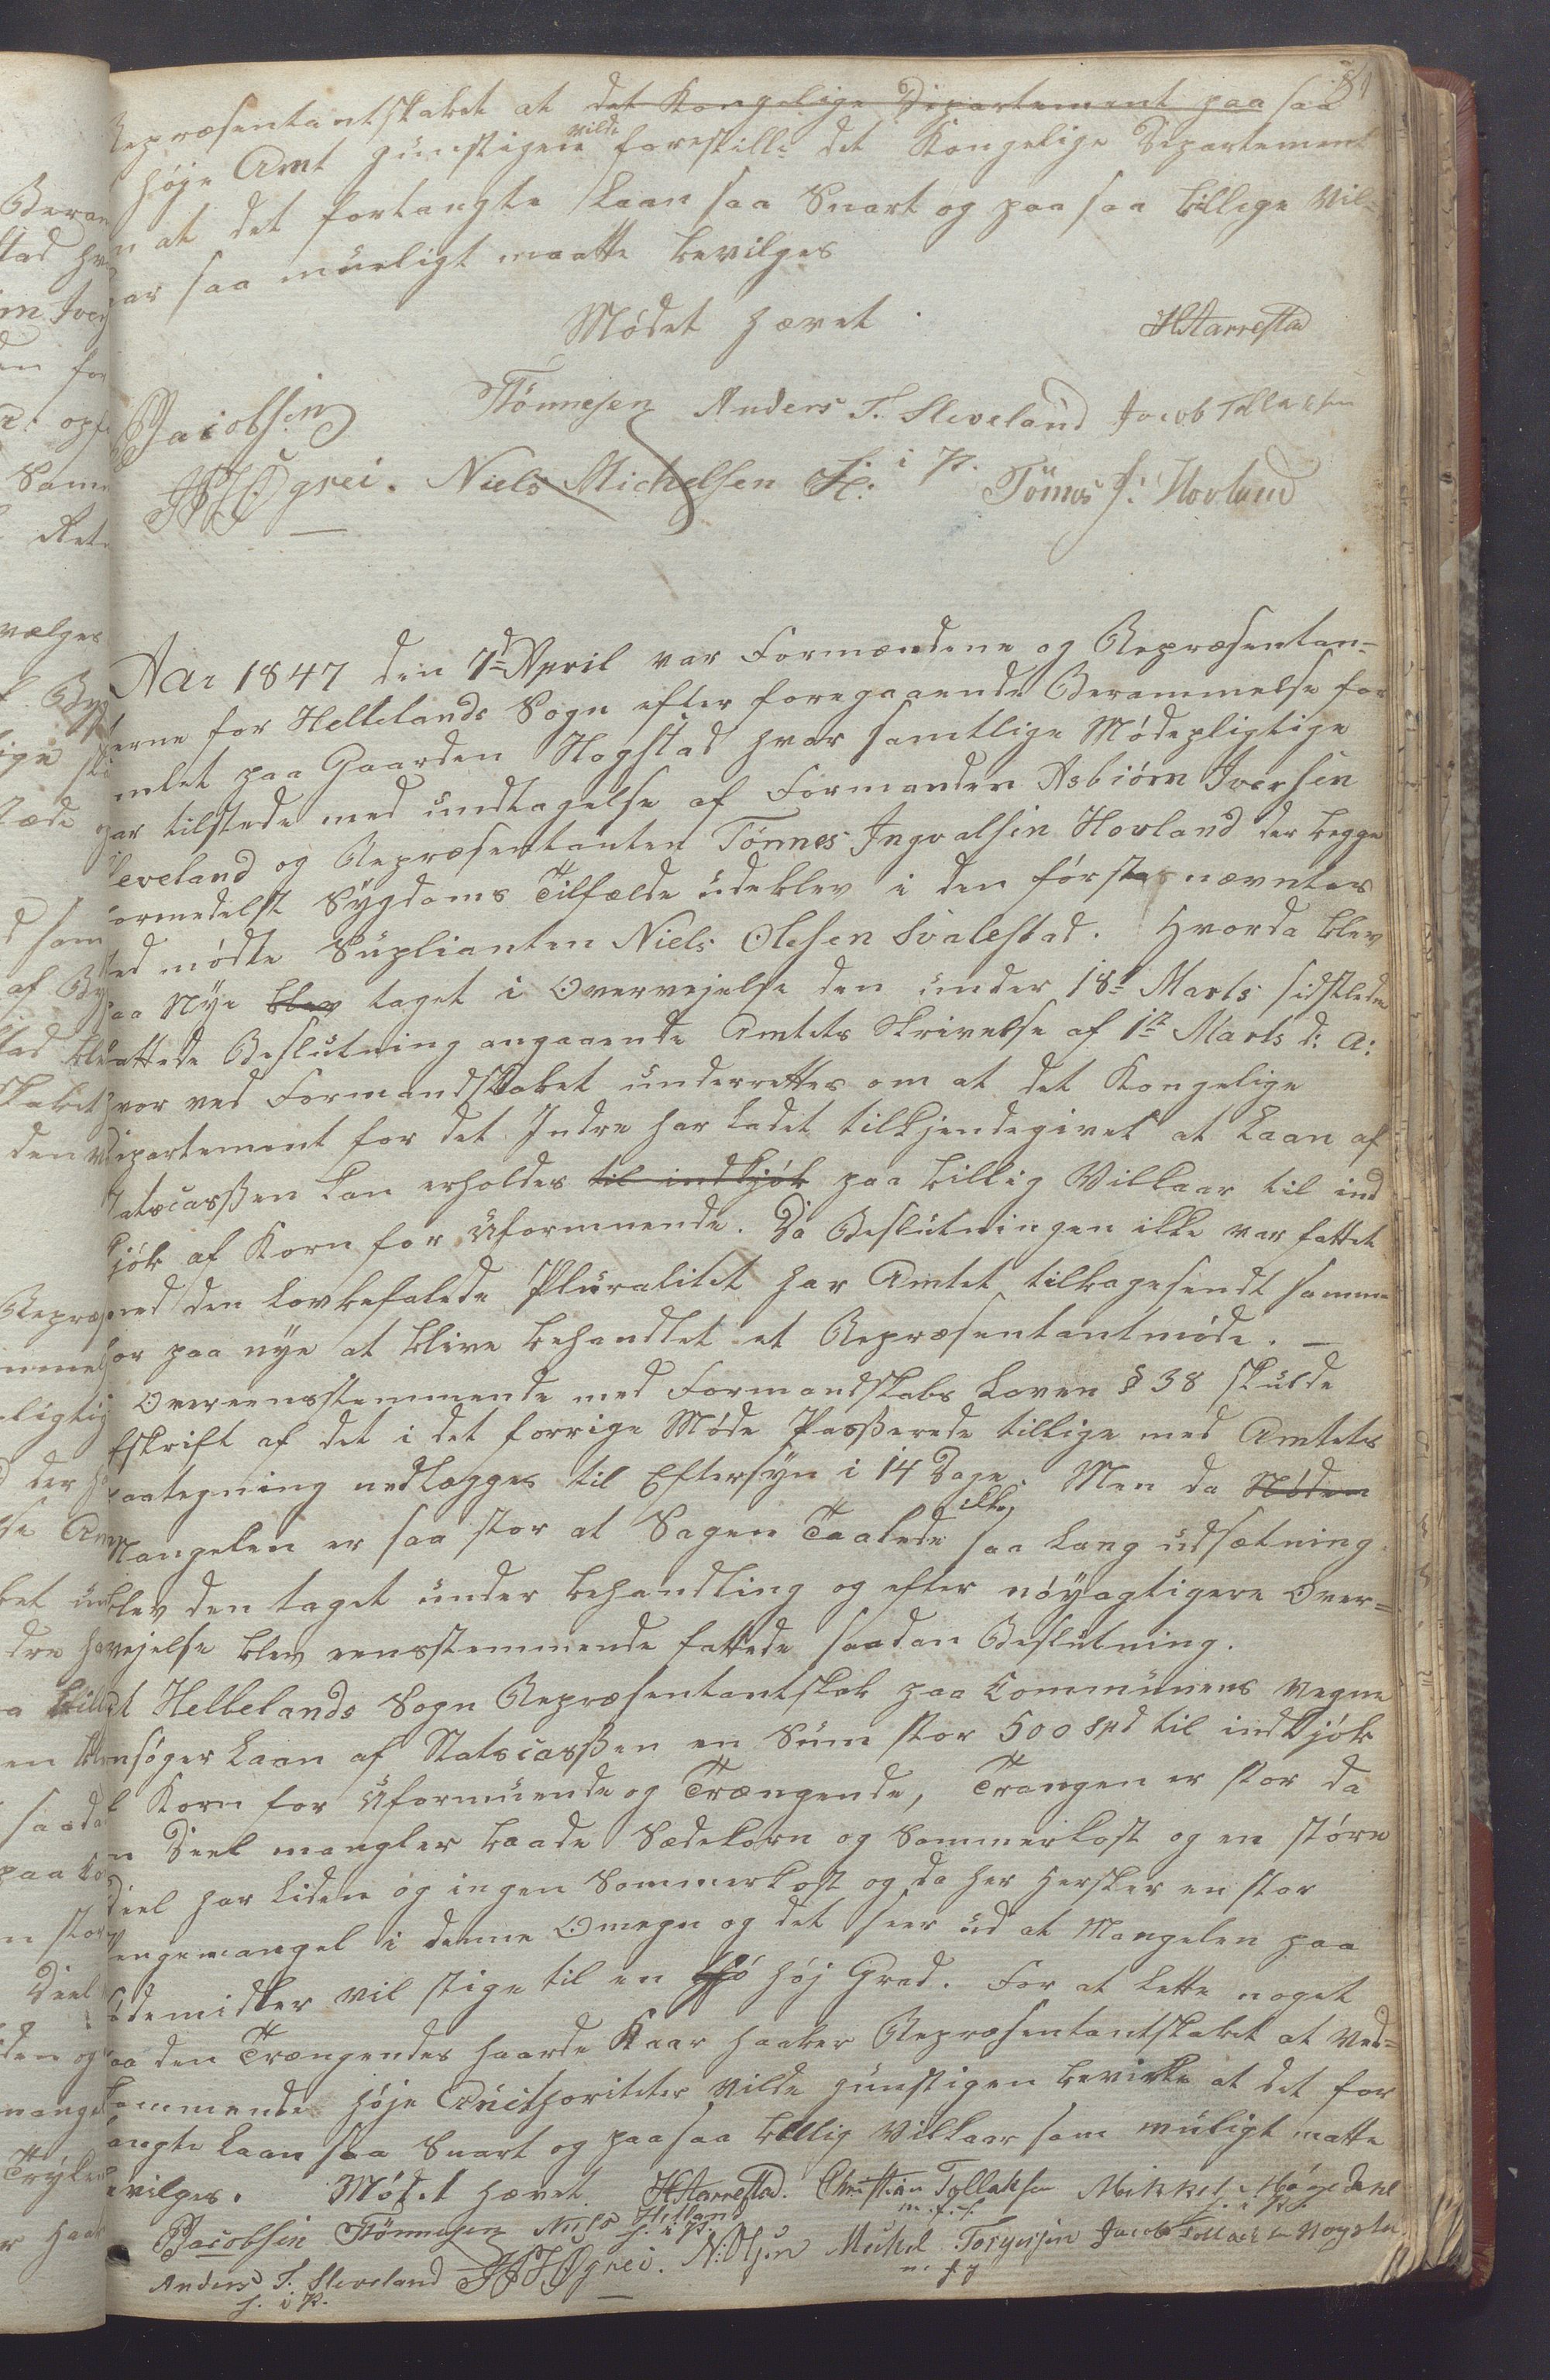 81
Repræsentantskabet at det Kongelige Departement paa saa
høje Amt gunstigen vilde forestille det Kongelige Departement
n at det forlangte Laan saa Snart og paa saa billige Vil-
aar saa mueligt maatte bevilges
Mødet hævet. HAarrestad
PJacobsen Tønnesen Anders T. Sleveland Jacob Tollaksen
Øgrei. Niels Michelsen H. i P. Tönnes J. Hovland
Aar 1847 den 7d April var Formændene og Repræsentan-
terne for Hellelands Sogn efter foregaaende Berammelse for
mlet paa Gaarden Hogstad hvor samtlige Mødepligtige
var tilstede med undtagelse af Formanden Asbiörn Iversen
leveland og Repræsentanten Tönnes Ingvalsen Hovland der begge
formedelst Sygdoms Tilfælde udeblev i den förstnævntes
ted mødte Suplianten Niels Olesen Svalestad. Hvorda blev
paa Nye blev taget i Overvejelse den under 18d Marts sidstleden
fattede Beslutning angaaende Amtets Skrivelse af 1ste Marts d: A:
hvor ved Formandskabet underrettes om at det Kongelige
Departement for det Indre har ladet tilkjendegivet at Laan af
Statscassen kan erholdes til indkjøb paa billig Villkaar til ind
kjøb af Korn for Uformuende. Da Beslutningen ikke var fattet
med den lovbefalede Pluralitet har Amtet tilbagesendt samme
for paa nye at blive behandlet et Repræsentantmøde. —
Overeensstemmende med Formandskabs Loven § 38 skulde
fskrift af det i det forrige Møde Passerede tillige med Amtets
paategning nedlægges til Eftersyn i 14 Dage. Men da Nöden
Mangelen er saa stor at Sagen Taalede ikke saa lang udsætning
blev den taget under behandling og efter nöyagtigere Over-
vejelse blev eensstemmende fattede saadan Beslutning.
at Hellelands Sogn Repræsentantskab paa Communens Vegne
nsøger Laan af Statscassen en Sum stor 500 Spd til indkjøb
Korn for Uformuende og Trængende, Trangen er stor da
n Deel mangler baade Sædekorn og Sommerkost og en støre
Deel har liden og ingen Sommerkost og da her hersker en stor
Pengemangel i denne Omegn og det seer ud at Mangelen paa
Födemidler vil stige til en höj Grad. For at lette noget
paa den Trængendes haarde Kaar haaber Repræsentantskabet at Ved-
kommende höje Authoriteter vilde gunstigen bevirke at det for
langte Laan saa Snart og paa saa billig Villkaar som muligt matte
bevilges. Mødet hævet HAarrestad. Christian Tollaksen Mikkel
m. f. P. H. i P.
PJacobsen Tönnesen Niels Helland Øgrei. N: Olsen Mickel Torgersen Jacob Tollaksen
Anders T. Sleveland
H. i P.